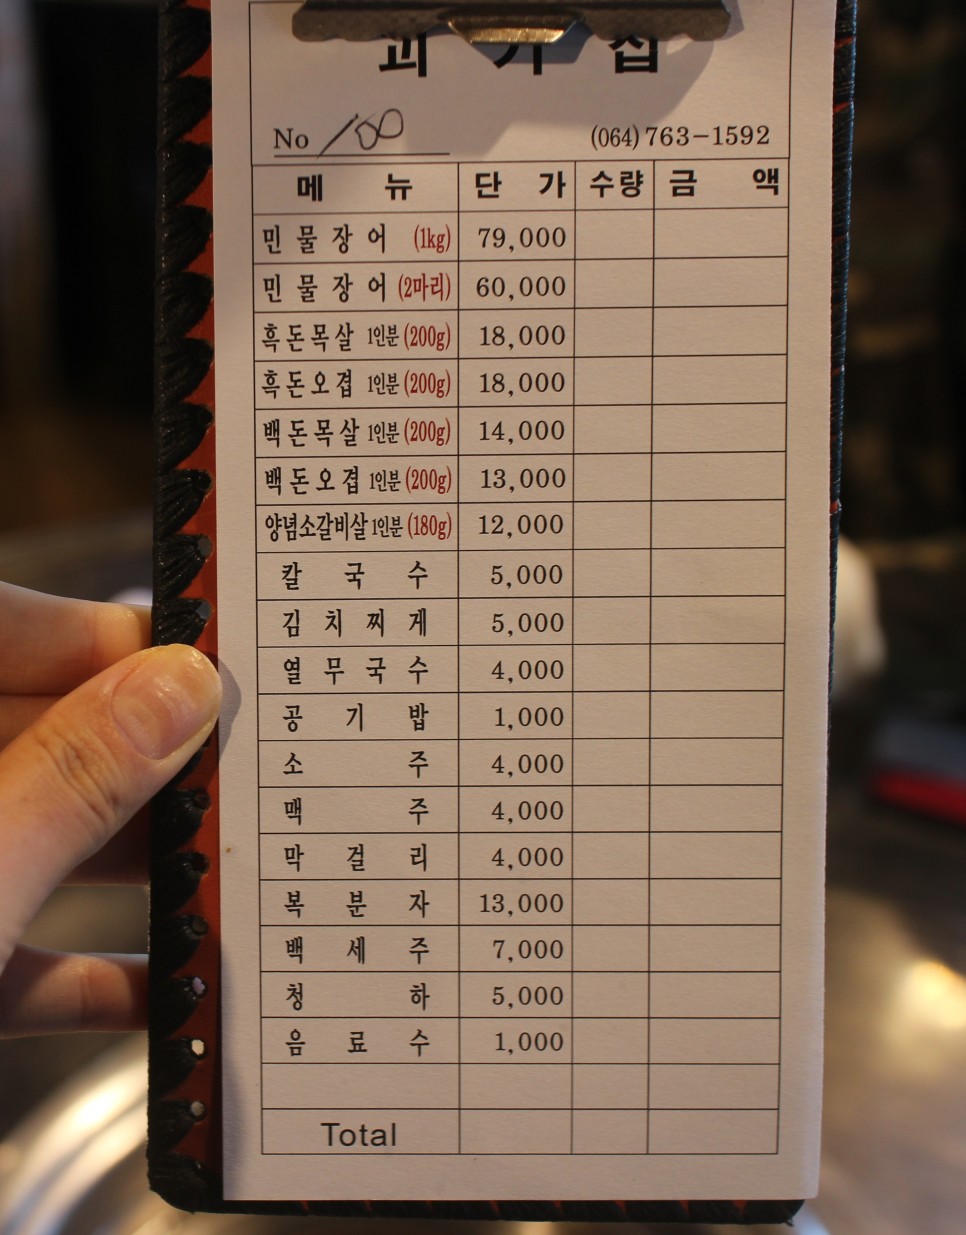 No 100
(064) 763-1592
메 뉴 단 가 수량 금 액
민물장어 (1kg) 79,000
민물장어 (2마리) 60,000
흑돈목살 1인분 (200g) 18,000
흑돈오겹 1인분 (200g) 18,000
백돈목살 1인분 (200g) 14,000
백돈오겹 1인분 (200g) 13,000
양념소갈비살 1인분 (180g) 12,000
칼국수 5,000
김치찌게 5,000
열무국수 4,000
공기밥 1,000
소주 4,000
맥주 4,000
막걸리 4,000
복분자 13,000
백세주 7,000
청하 5,000
음료수 1,000
Total